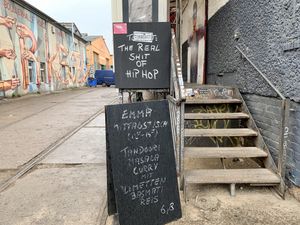 THE REAL
SHIT
OF
HIP HOP
EMMA
MITTAGSTISCH
TANDOORI
MASALA
CURRY
MIT
LIMETTEN
BASMATI
REIS
6,8